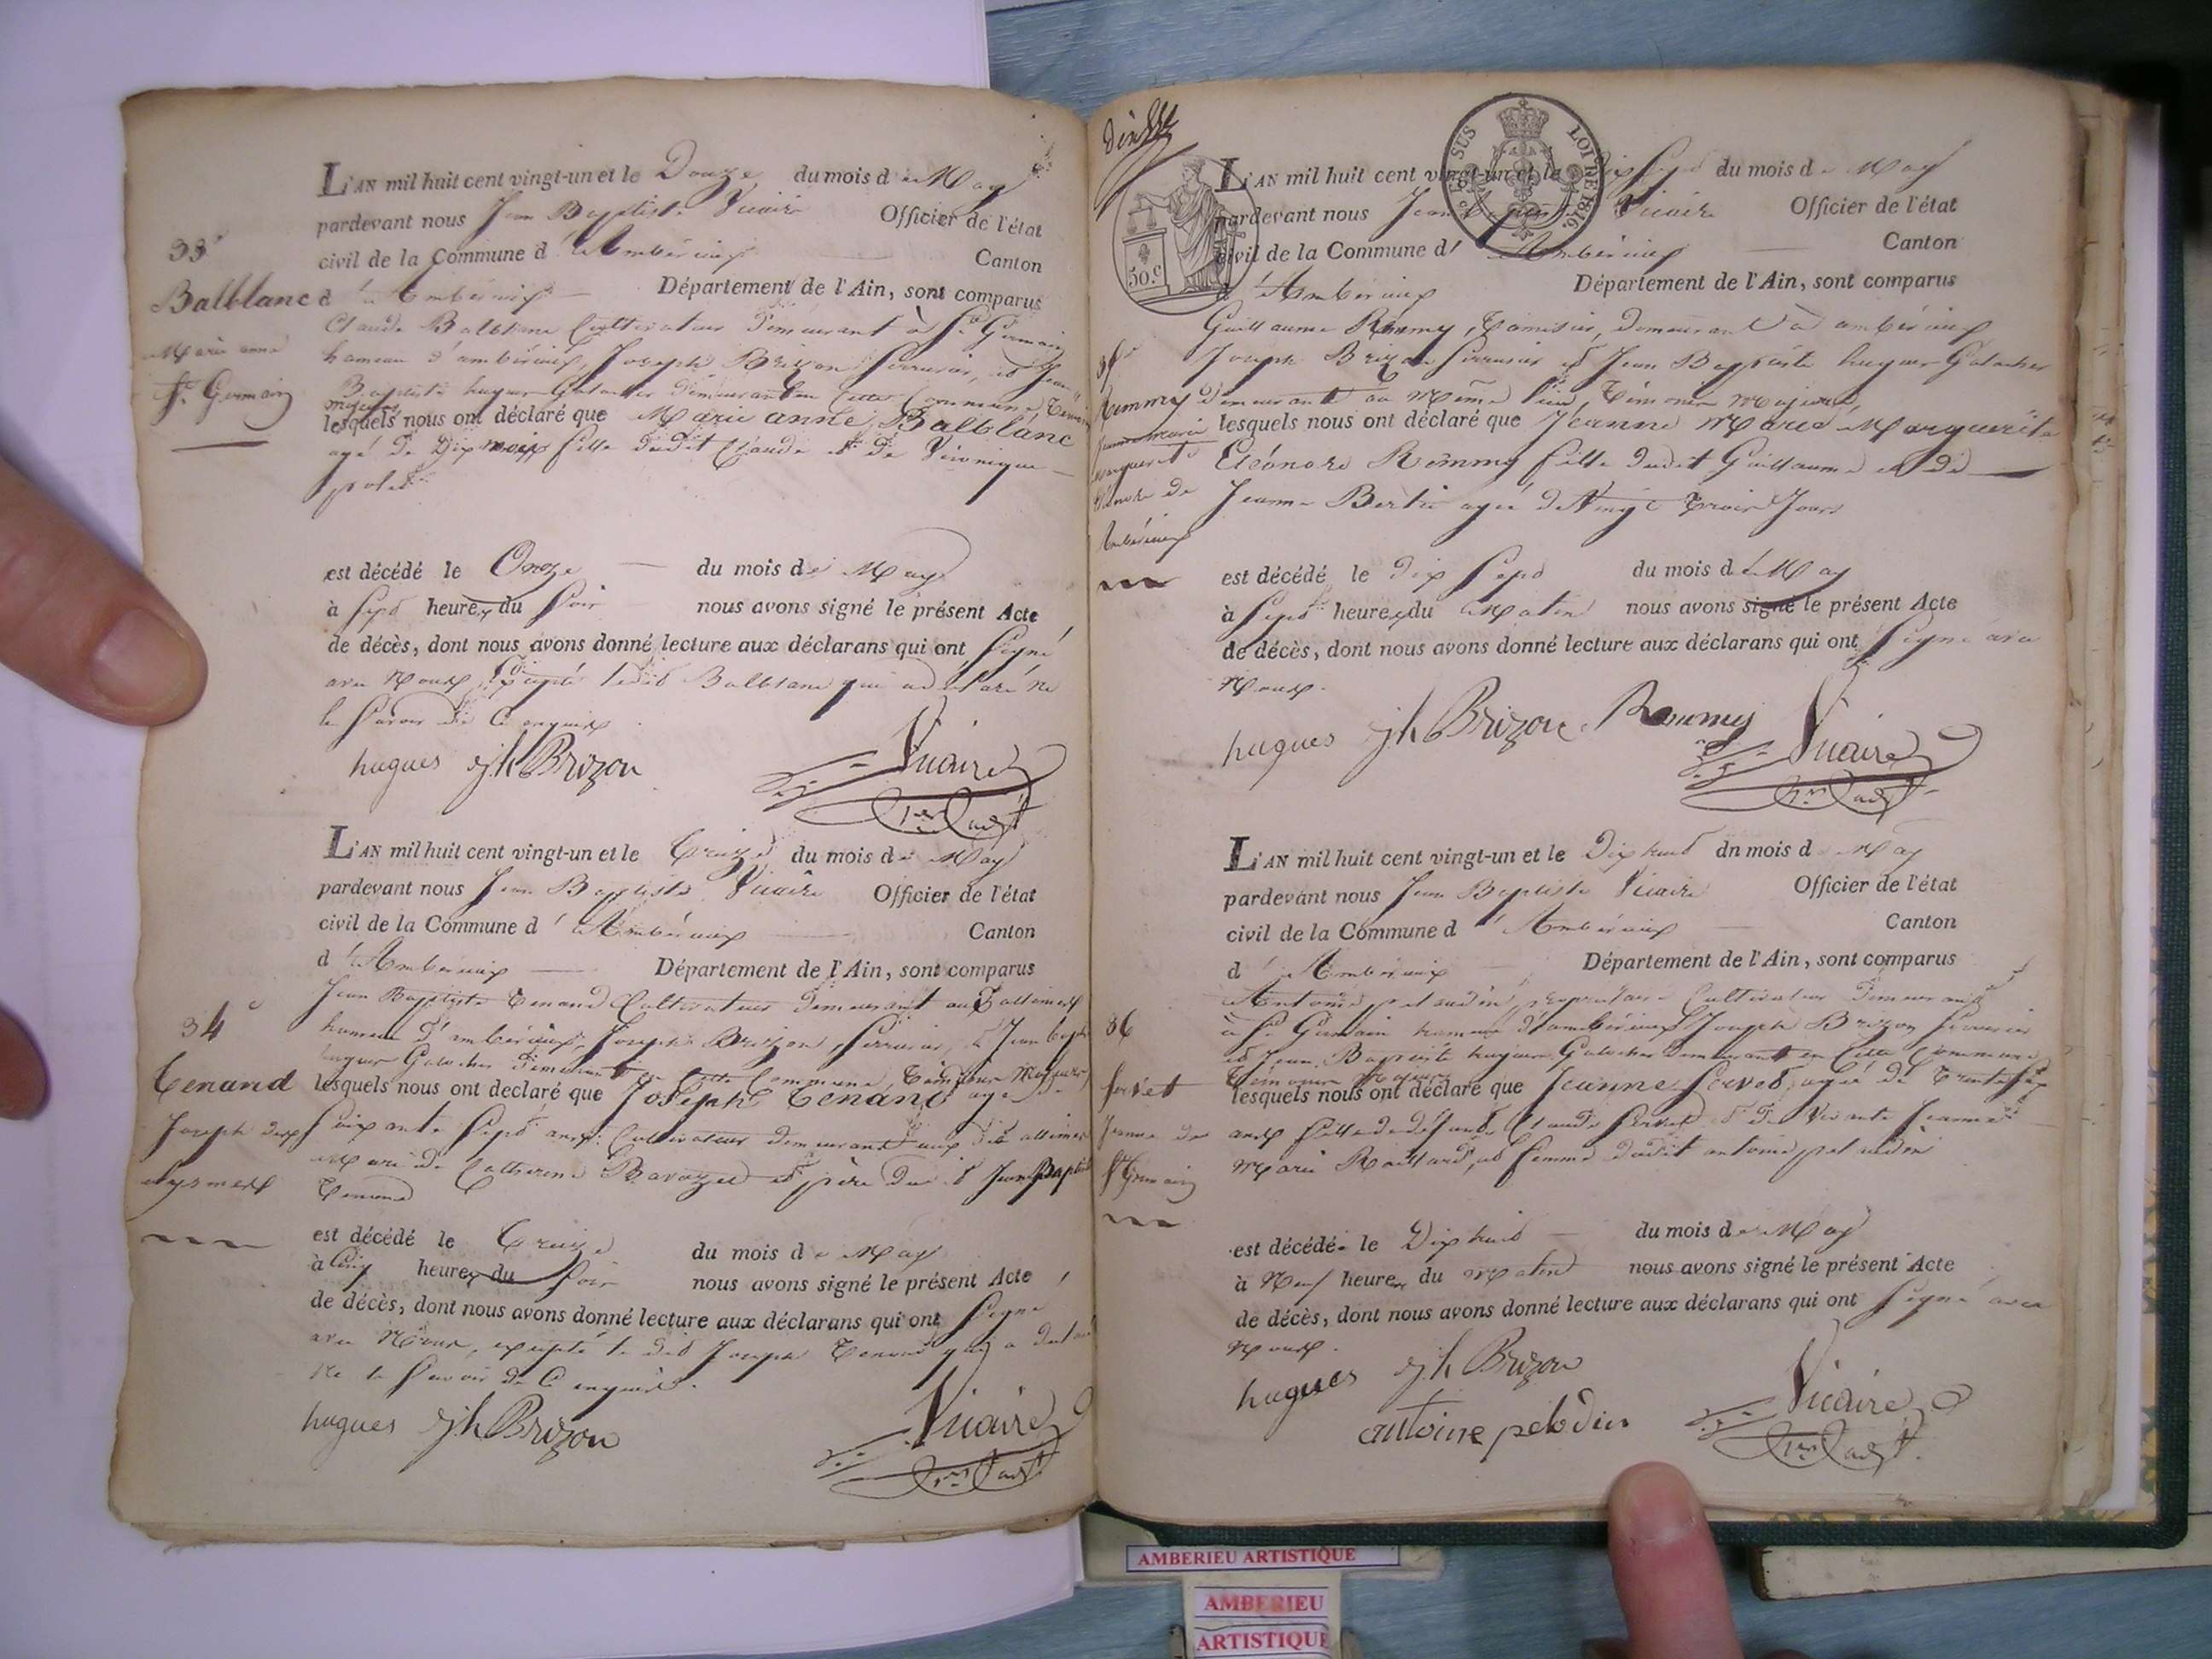 33e
Balblanc
Marie anne
St. Germain
L'AN mil huit cent vingt-un et le Douze du mois de May
pardevant nous Jean Baptiste Vicaire Officier de l'état
civil de la Commune d'Ambérieux Canton
d'Ambérieux Département de l'Ain, sont comparus
Claude Balblanc Cultivateur demeurant à St. Germain
hameau d'ambérieux, Joseph Brizon Serrurier, et Jean
Baptiste hugues Galocher demeurant en Cette Commune, témoins
majeurs
lesquels nous ont déclaré que Marie anne Balblanc
agé de Dix mois fille dudit Claude et de Véronique
est décédé le Onze du mois de May
à Sept heures du Soir nous avons signé le présent Acte
de décès, dont nous avons donné lecture aux déclarans qui ont Signé
avec Nous, Excepté ledit Balblanc qui a déclaré ne
le Savoir de Ce enquis
hugues jh Brizon Vicaire
1er adjt
34e
Tenand
Joseph des
L'AN mil huit cent vingt-un et le Treize du mois de May
pardevant nous Jean Baptiste Vicaire Officier de l'état
civil de la Commune d'Ambérieux Canton
d'Ambérieux Département de l'Ain, sont comparus
Jean Baptiste Tenand Cultivateur demeurant aux
hameau d'ambérieux, Joseph Brizon Serrurier, et Jean Bapte
hugues Galocher demeurant en Cette Commune, témoins Majeurs,
lesquels nous ont declaré que Joseph Tenand agé de
Soixante Sept ans, Cultivateur demeurant aux dits
Mari de Catherine Bavozet et père dudit Jean Baptiste
Tenand
est décédé le Treize du mois de May
à Cinq heures du Soir nous avons signé le présent Acte
de décès, dont nous avons donné lecture aux déclarans qui ont Signé
avec Nous, excepté le dit Joseph Tenand qui a déclaré
Ne le Savoir de Ce enquis.
hugues jh Brizon Vicaire
1er adjt
50 c.
SUS LOI DE 1816.
35e
Remmy
Jeanne marie
marguerite
Eléonore de
Ambérieux
L'AN mil huit cent vingt-un et le Dix Sept du mois de May
pardevant nous Jean Baptiste Vicaire Officier de l'état
civil de la Commune d'Ambérieux Canton
d'Ambérieux Département de l'Ain, sont comparus
Guillaume Remmy, Tamisier, demeurant à ambérieux
Joseph Brizon Serrurier et Jean Baptiste hugues Galocher
demeurants au Même lieu, témoins Majeurs
lesquels nous ont déclaré que Jeanne Marie Marguerite
Eléonore Remmy fille dudit Guillaume et de
Jeanne Bertie agée de Vingt Trois Jours
est décédé le dix Sept du mois de May
à Sept heures du Matin nous avons signé le présent Acte
de décès, dont nous avons donné lecture aux déclarans qui ont Signé avec
Nous.
hugues jh Brizon Remmy Vicaire
1er adjt
36
Servet
Jeanne de
St Germain
L'AN mil huit cent vingt-un et le Dix huit dn mois de May
pardevant nous Jean Baptiste Vicaire Officier de l'état
civil de la Commune d'Ambérieux Canton
d'Ambérieux Département de l'Ain, sont comparus
Antoine petaudin, propriétaire Cultivateur demeurant
à St Germain hameau d'ambérieux, Joseph Brizon Serrurier
et Jean Baptiste hugues Galocher demeurant en Cette Commune
Témoins Majeurs
lesquels nous ont déclaré que Jeanne Servet, agée de Trente Six
ans fille de défunt Claude Servet et de Vivante Jeanne
Marie Roullard, et femme dudit antoine petaudin
est décédée le Dix huit du mois de May
à Neuf heures du Matin nous avons signé le présent Acte
de décès, dont nous avons donné lecture aux déclarans qui ont Signé avec
Nous.
hugues jh Brizon
antoine pelodin Vicaire
1er adjt
AMBERIEU ARTISTIQUE
AMBERIEU
ARTISTIQUE